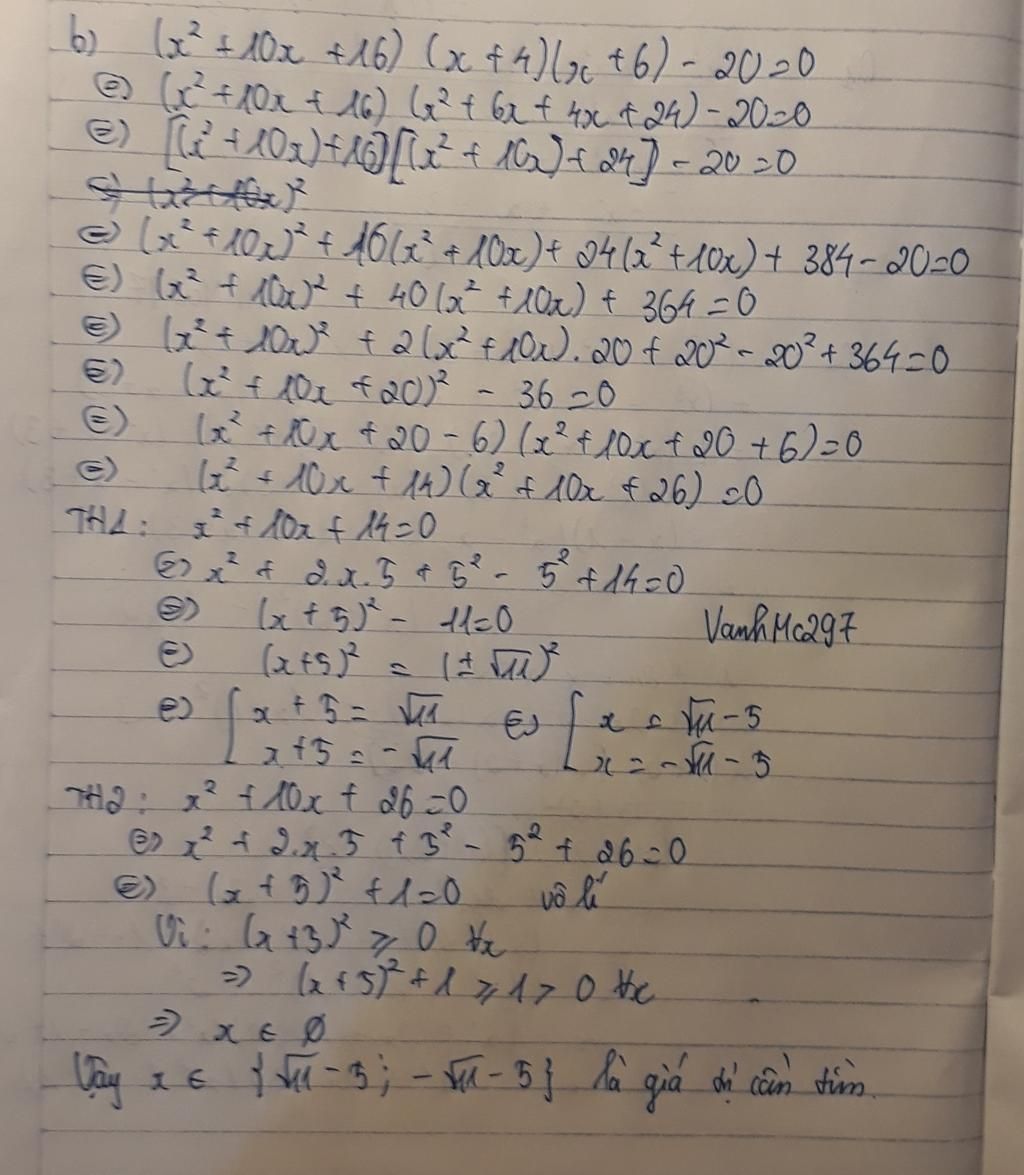 b) (x² + 10x + 16) (x + 4)(x + 6) - 20 = 0
⇔ (x² + 10x + 16) (x² + 6x + 4x + 24) - 20 = 0
⇔ [(x² + 10x) + 16][(x² + 10x) + 24] - 20 = 0
⇔ (x² + 10x)²
⇔ (x² + 10x)² + 16(x² + 10x) + 24(x² + 10x) + 384 - 20 = 0
⇔ (x² + 10x)² + 40(x² + 10x) + 364 = 0
⇔ (x² + 10x)² + 2(x² + 10x).20 + 20² - 20² + 364 = 0
⇔ (x² + 10x + 20)² - 36 = 0
⇔ (x² + 10x + 20 - 6)(x² + 10x + 20 + 6) = 0
⇔ (x² + 10x + 14)(x² + 10x + 26) = 0
TH1: x² + 10x + 14 = 0
⇔ x² + 2.x.5 + 5² - 5² + 14 = 0
⇔ (x + 5)² - 11 = 0
VanhMc297
⇔ (x + 5)² = (± √11)²
⇔ [ x + 5 = √11 ⇔ [ x = √11 - 5
x + 5 = - √11 x = - √11 - 5
TH2: x² + 10x + 26 = 0
⇔ x² + 2.x.5 + 5² - 5² + 26 = 0
⇔ (x + 5)² + 1 = 0 vô lí
Vì: (x + 5)² ⩾ 0 ∀x
⇒ (x + 5)² + 1 ⩾ 1 > 0 ∀x
⇒ x ∈ ∅
Vậy x ∈ {√11 - 5; - √11 - 5} là giá trị cần tìm.